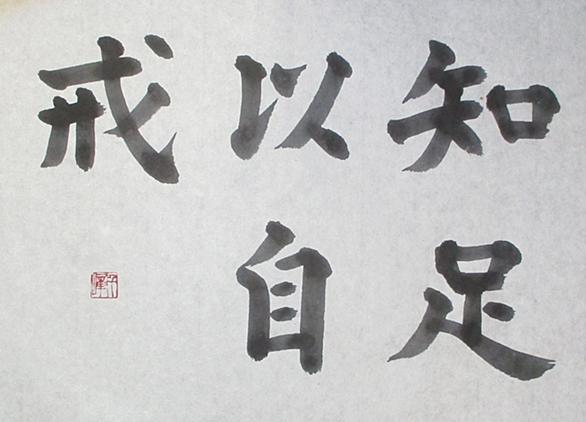 知足
以自
戒